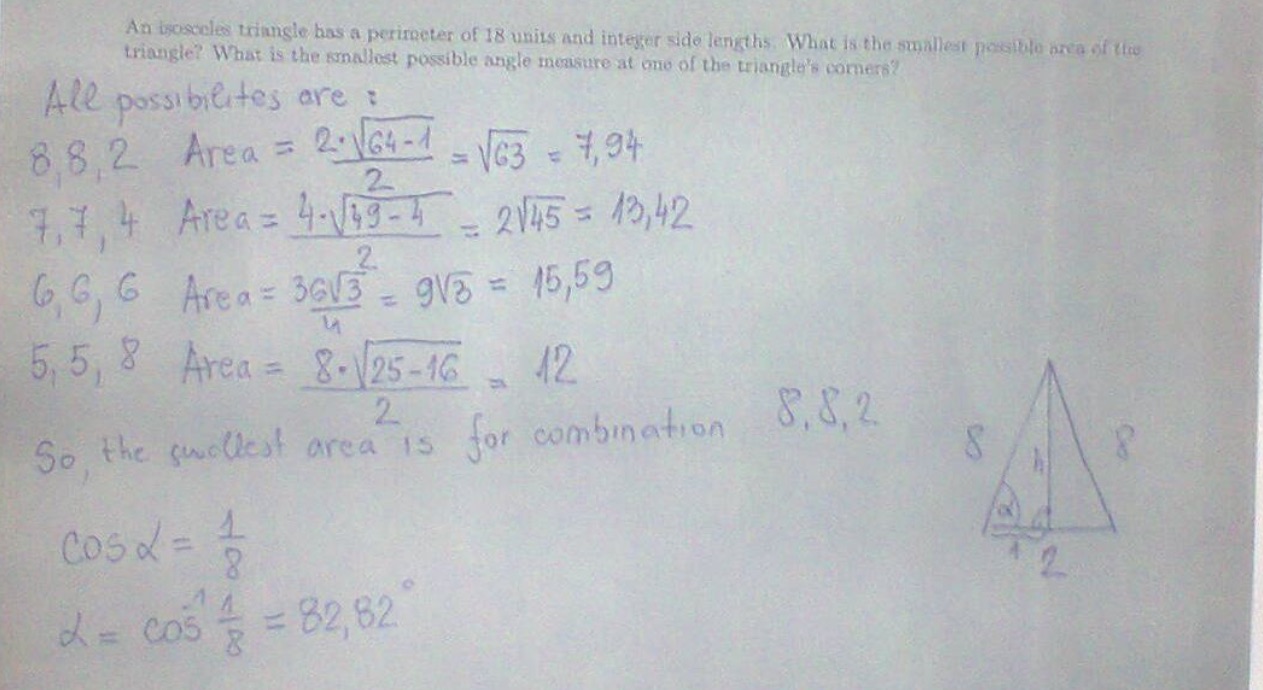 An isosceles triangle has a perimeter of 18 units and integer side lengths. What is the smallest possible area of the
triangle? What is the smallest possible angle measure at one of the triangle's corners?
All possibilites are :
8,8,2 Area = 2·√(64-1)/2 = √63 = 7,94
7,7,4 Area = 4·√(49-4)/2 = 2√45 = 13,42
6,6,6 Area = 36√3/4 = 9√3 = 15,59
5,5,8 Area = 8·√(25-16)/2 = 12
So, the smallest area is for combination 8,8,2
8 h 8
α
1 2
cos α = 1/8
α = cos⁻¹ 1/8 = 82,82°